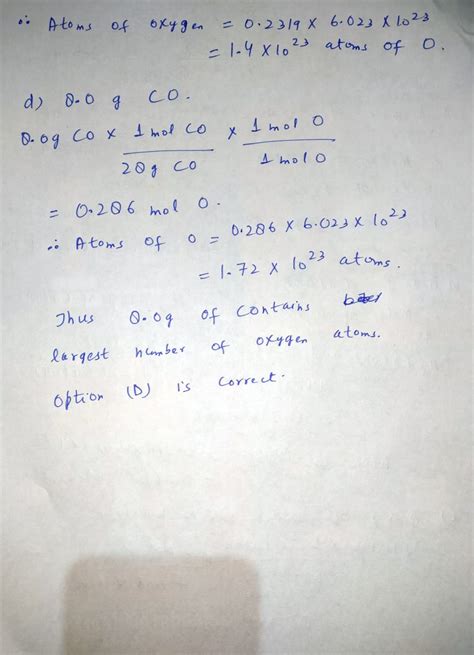 ∴ Atoms of oxygen = 0.2319 × 6.023 × 10²³
= 1.4 × 10²³ atoms of O.
d) 8.0 g CO.
8.0g CO × 1 mol CO × 1 mol O
28g CO 1 mol O
= 0.286 mol O.
∴ Atoms of O = 0.286 × 6.023 × 10²³
= 1.72 × 10²³ atoms.
Thus 8.0g of contains
largest number of oxygen atoms.
option (D) is correct.